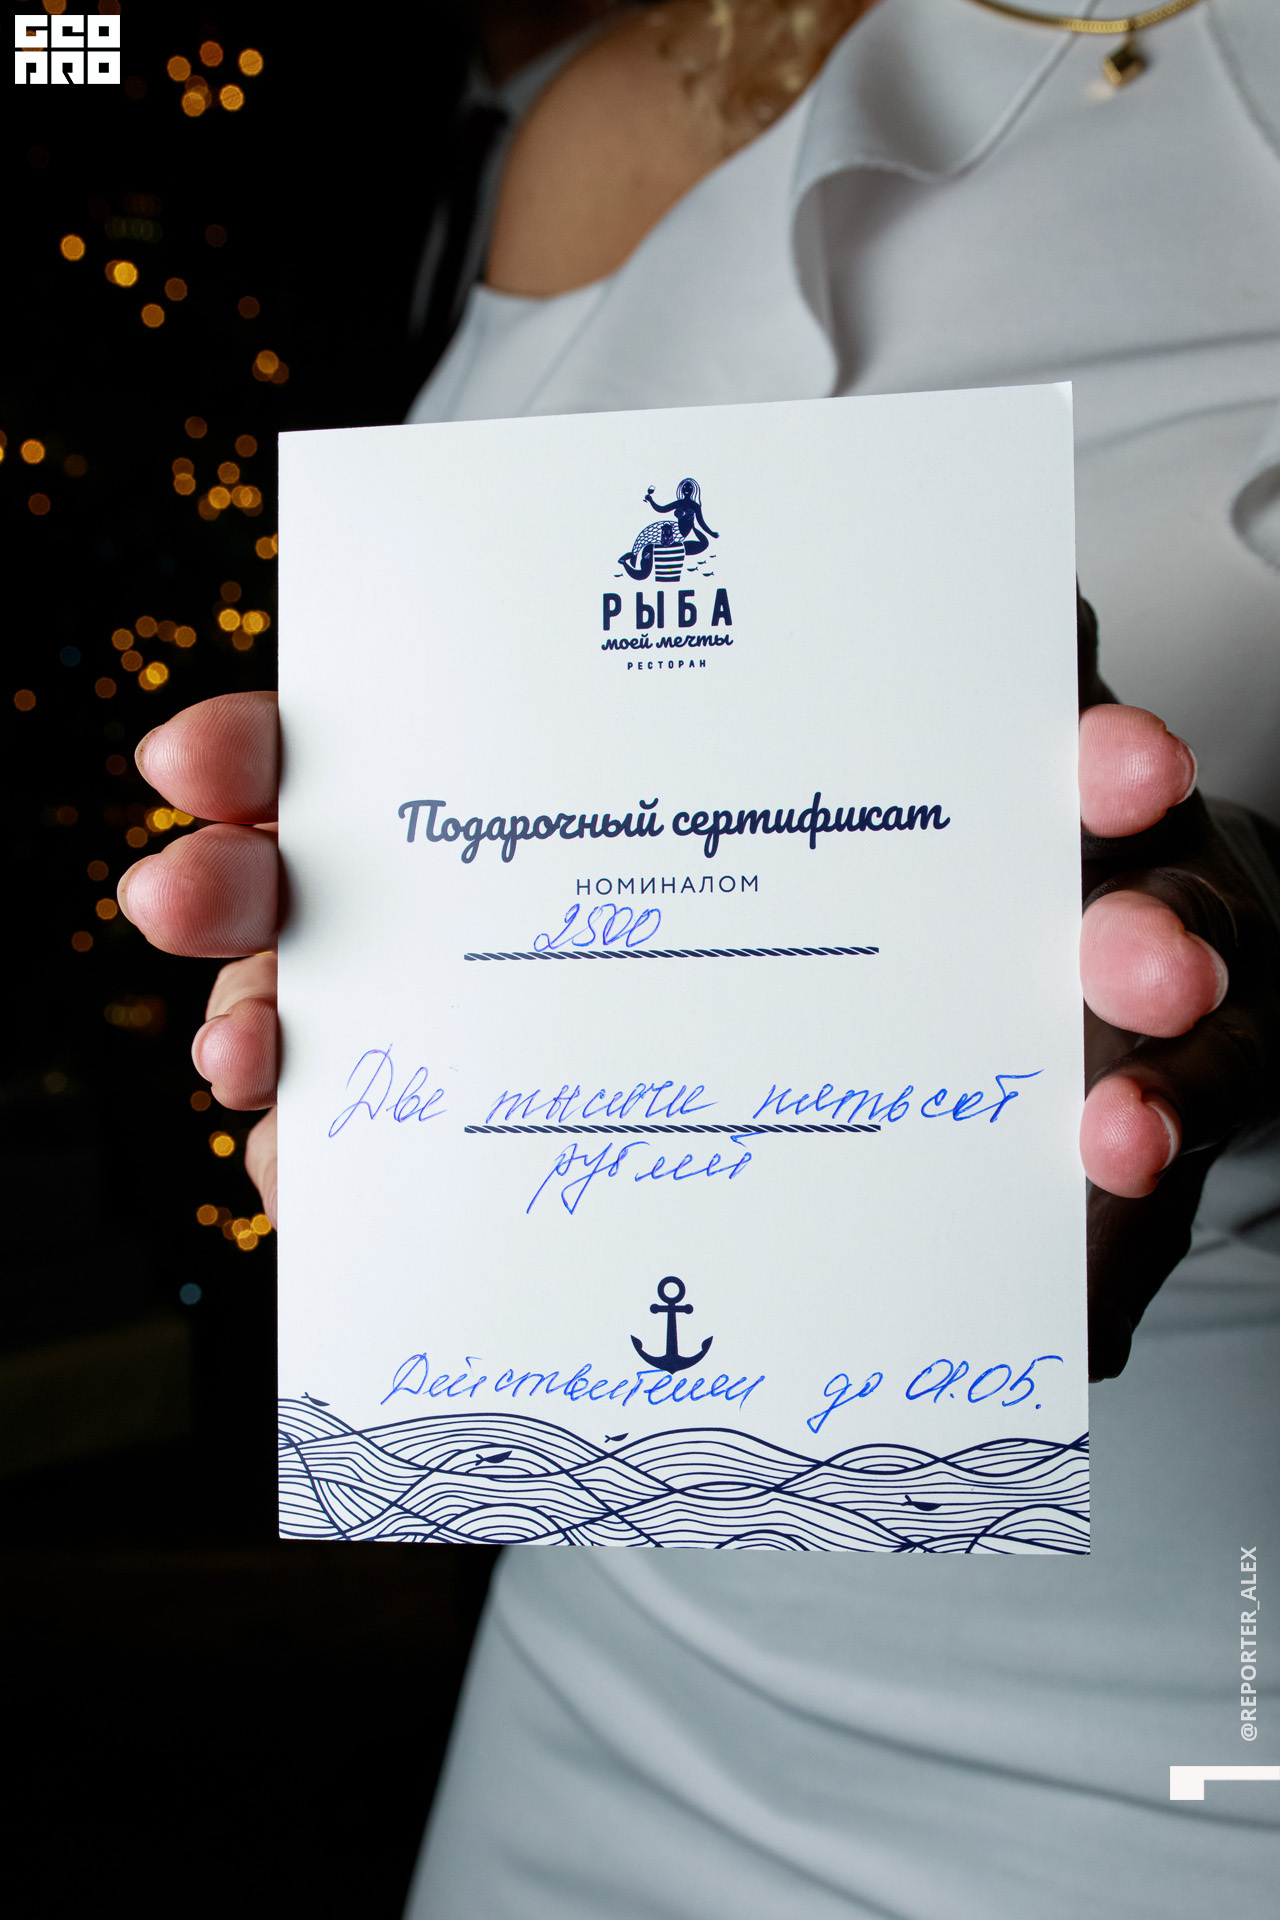 GEO
PRO
РЫБА
моей мечты
РЕСТОРАН
Подарочный сертификат
НОМИНАЛОМ
2500
Две тысячи пятьсот
рублей
Действителен до 01.05.
@REPORTER_ALEX